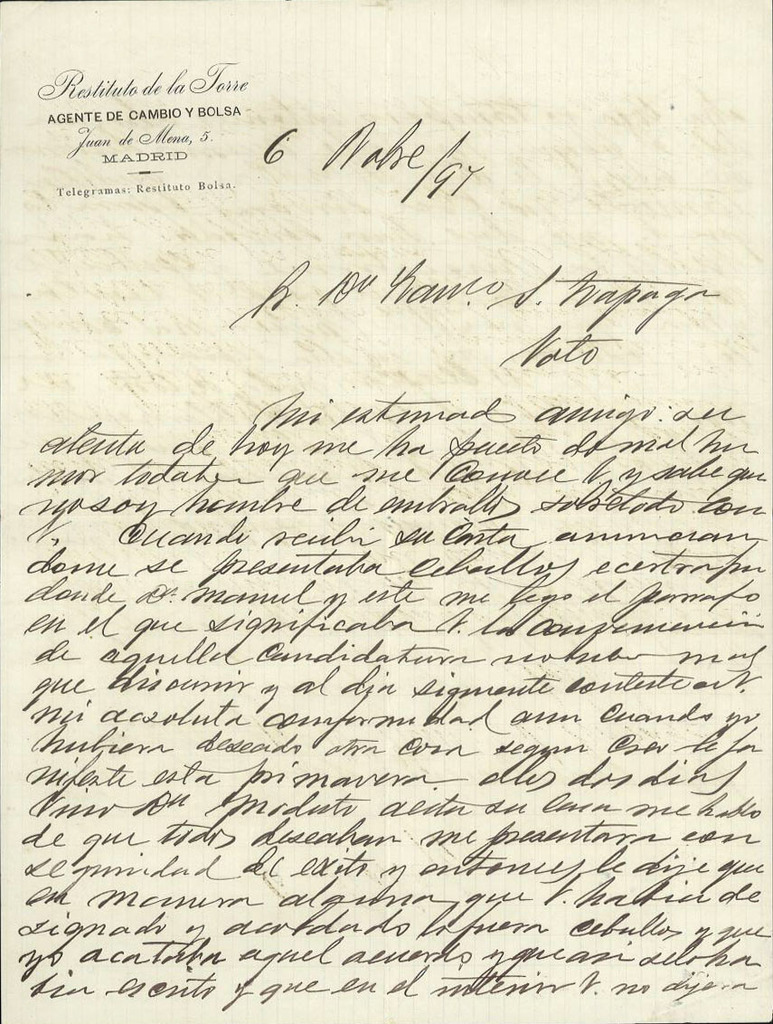 Restituto de la Torre
AGENTE DE CAMBIO Y BOLSA
Juan de Mena, 5.
MADRID
Telegramas: Restituto Bolsa.
6 Nobre/97
Sr. Dn Franco. S. Trapaga
Voto
Mi estimado amigo: su
atenta de hoy me ha puesto de mal hu
mor toda vez que me conoce V. y sabe que
yo soy hombre de embrollos sobre todo con
V. Cuando recibi su carta anuncian
dome se presentaba Ceballos
donde Dn. Manuel y este me leyo el parrafo
en el que significaba V. la
de aquella candidatura no hubo mas
que discurrir y al dia siguiente conteste a V.
mi absoluta conformidad aun cuando yo
hubiera deseado otra cosa segun creo le ma
nifeste esta primavera. A los dos dias
vino Dn Modesto a esta su casa me hablo
de que todos deseaban me presentara con
seguridad del exito y entonces le dije que
en manera alguna, que V. habia de
signado y acordado lo fuera Ceballos y que
yo acataba aquel acuerdo y que asi se lo ha
bia escrito y que en el interin V. no dijera